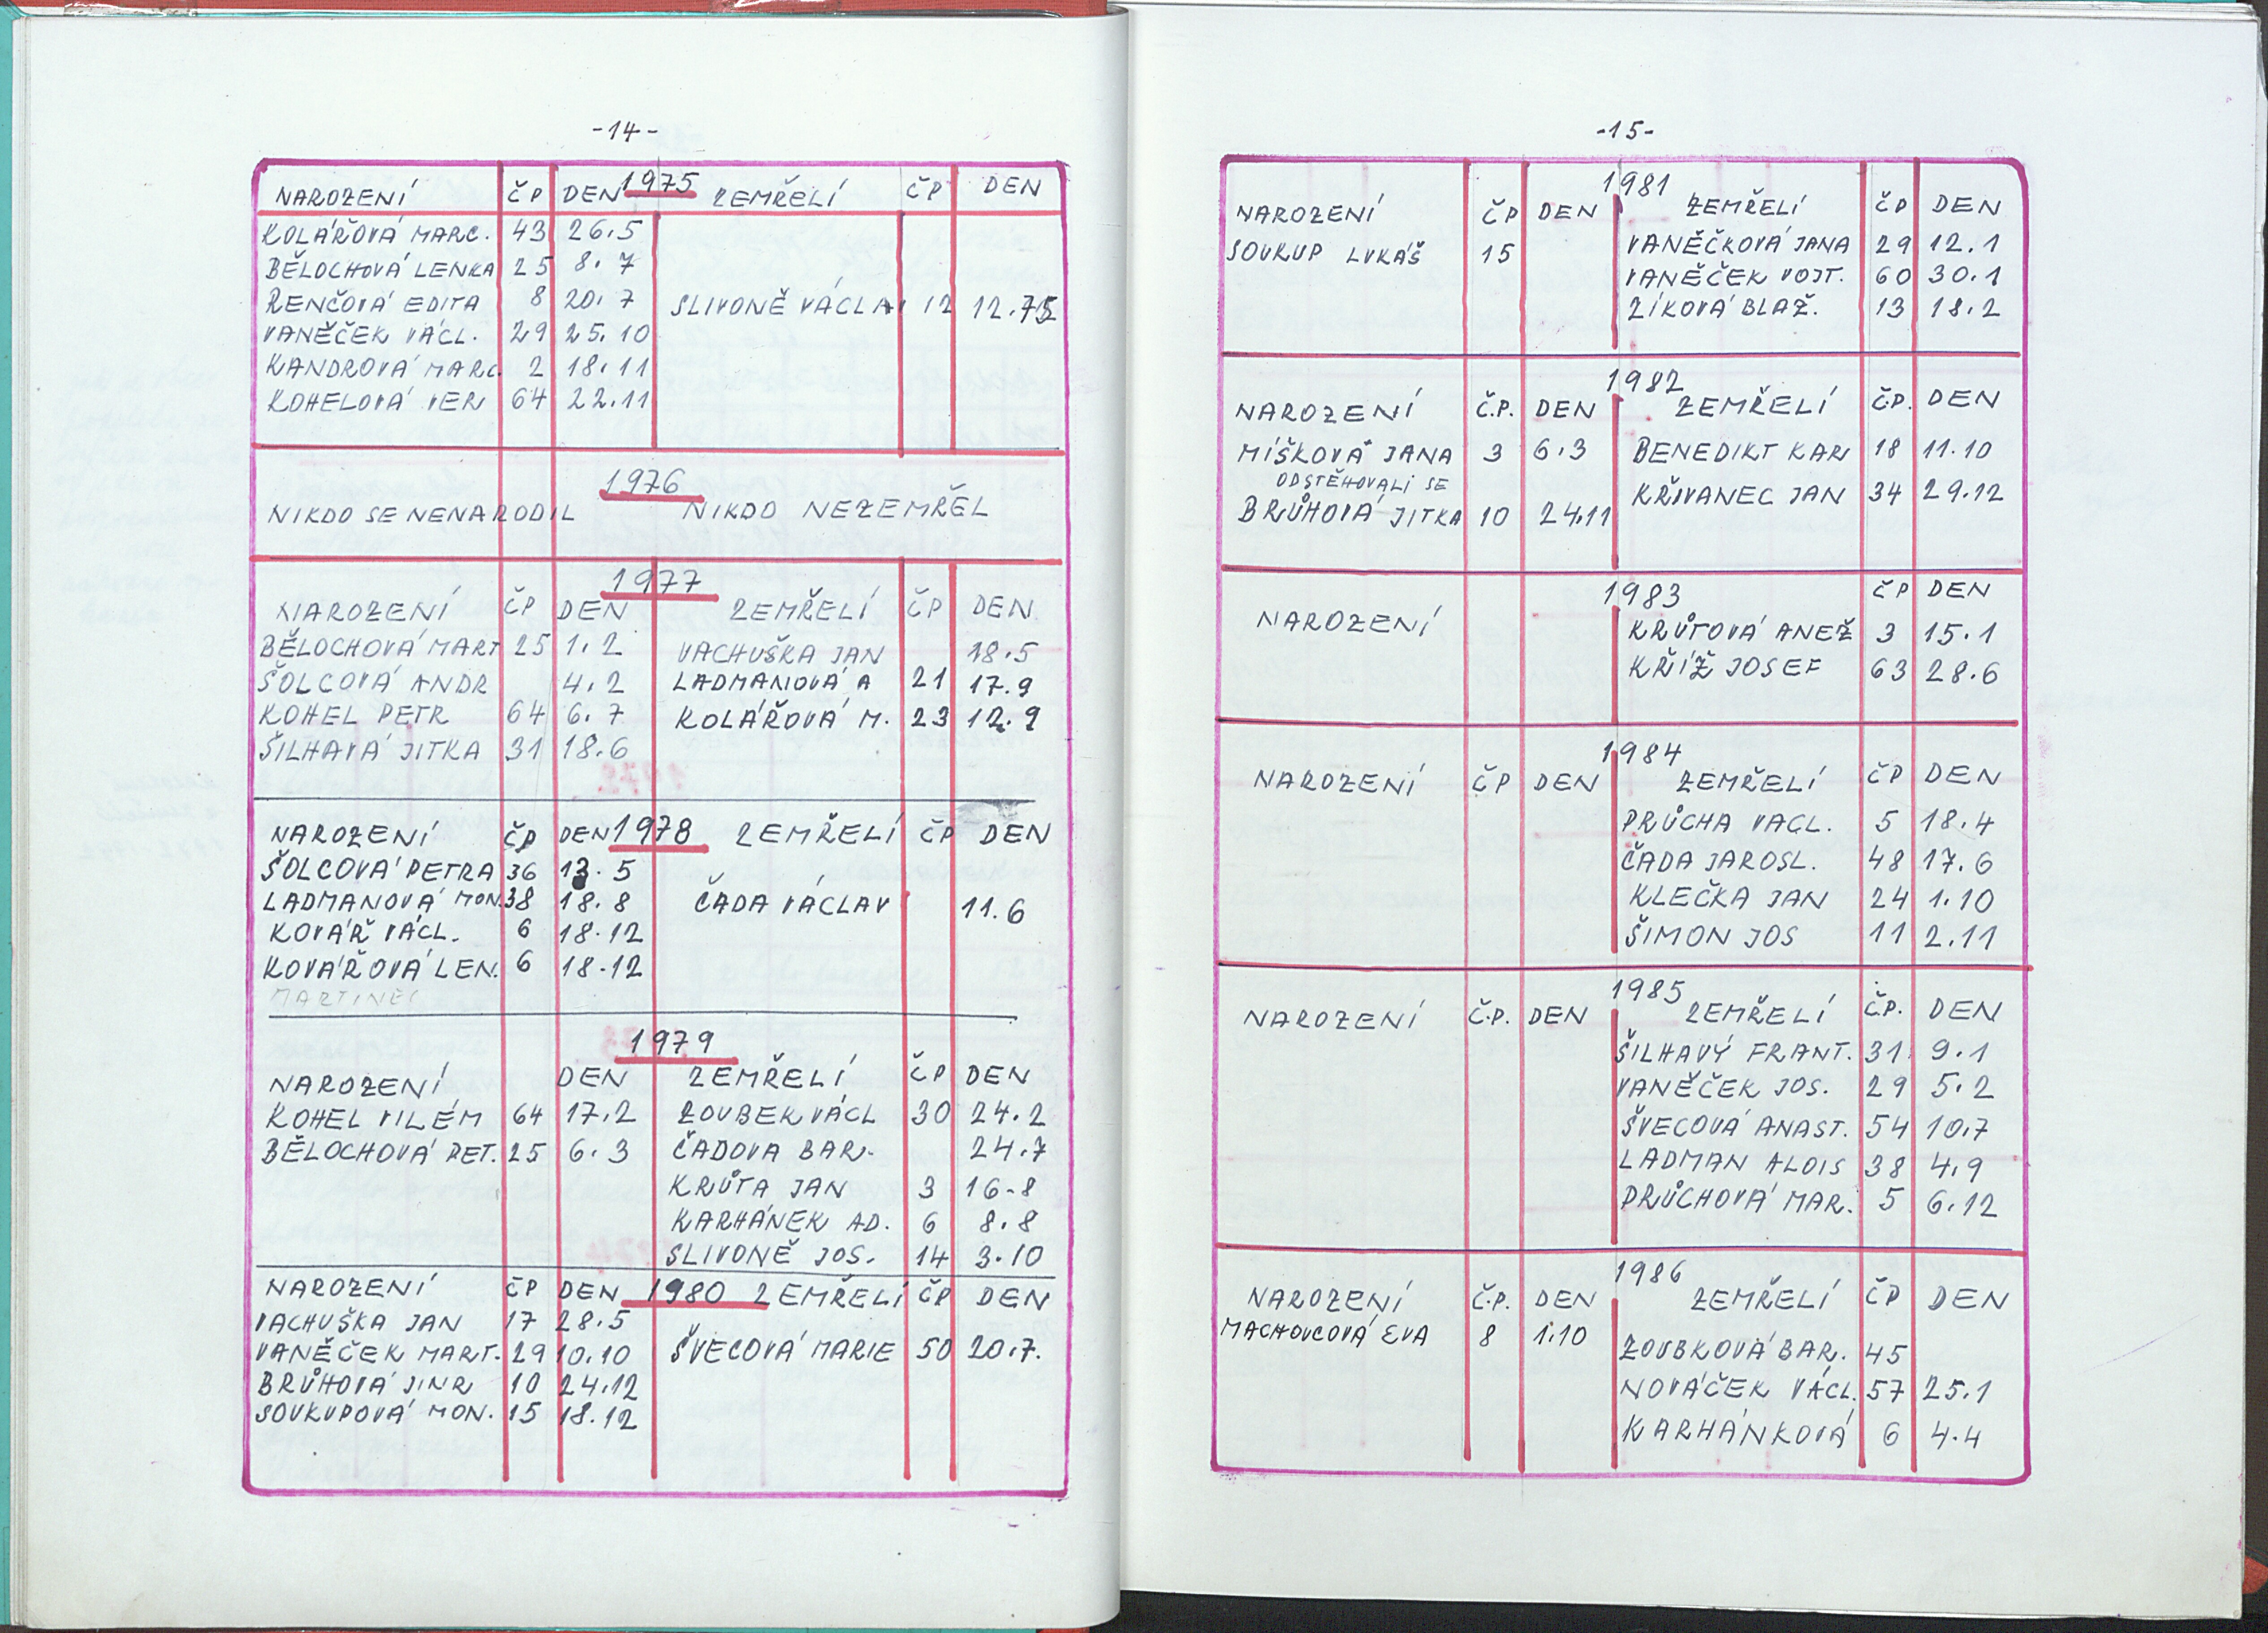 -14-
NAROZENÍ ČP DEN 1975 ZEMŘELÍ ČP DEN
KOLÁŘOVÁ MARC. 43 26.5
BĚLOCHOVÁ LENKA 25 8.7
RENČOVÁ EDITA 8 20.7 SLIVONĚ VÁCLAV 12 12.75
VANĚČEK VÁCL. 29 25.10
KANDROVÁ MARC. 2 18.11
KOHELOVÁ VER 64 22.11
1976
NIKDO SE NENARODIL NIKDO NEZEMŘEL
1977
NAROZENÍ ČP DEN ZEMŘELÍ ČP DEN
BĚLOCHOVÁ MART 25 1.2 VACHUŠKA JAN 18.5
ŠOLCOVÁ ANDR 4.2 LADMANOVÁ A 21 17.9
KOHEL PETR 64 6.7 KOLÁŘOVÁ M. 23 12.9
ŠILHAVÁ JITKA 31 18.6
NAROZENÍ ČP DEN 1978 ZEMŘELÍ ČP DEN
ŠOLCOVÁ PETRA 36 13.5
LADMANOVÁ MON. 38 18.8 ČADA VÁCLAV 11.6
KOVÁŘ VÁCL. 6 18.12
KOVÁŘOVÁ LEN. 6 18.12
MARTINEC
1979
NAROZENÍ DEN ZEMŘELÍ ČP DEN
KOHEL VILÉM 64 17.2 ZOUBEK VÁCL 30 24.2
BĚLOCHOVÁ PET. 25 6.3 ČADOVA BAR. 24.7
KRŮTA JAN 3 16.8
KARHÁNEK AD. 6 8.8
SLIVONĚ JOS. 14 3.10
NAROZENÍ ČP DEN 1980 ZEMŘELÍ ČP DEN
VACHUŠKA JAN 17 28.5
VANĚČEK MART. 29 10.10 ŠVECOVÁ MARIE 50 20.7.
BRŮHOVÁ JINR 10 24.12
SOUKUPOVÁ MON. 15 18.12
-15-
1981
NAROZENÍ ČP DEN ZEMŘELÍ ČP DEN
SOUKUP LUKÁŠ 15 VANĚČKOVÁ JANA 29 12.1
VANĚČEK VOJT. 60 30.1
ZÍKOVÁ BLAŽ. 13 18.2
1982
NAROZENÍ Č.P. DEN ZEMŘELÍ Č.P. DEN
MÍŠKOVÁ JANA 3 6.3 BENEDIKT KAR 18 11.10
ODSTĚHOVALI SE
BRŮHOVÁ JITKA 10 24.11 KŘIVANEC JAN 34 29.12
1983 ČP DEN
NAROZENÍ KRŮTOVÁ ANEŽ 3 15.1
KŘÍŽ JOSEF 63 28.6
1984
NAROZENÍ ČP DEN ZEMŘELÍ ČP DEN
PRŮCHA VACL. 5 18.4
ČADA JAROSL. 48 17.6
KLEČKA JAN 24 1.10
ŠIMON JOS 11 2.11
1985
NAROZENÍ Č.P. DEN ZEMŘELÍ Č.P. DEN
ŠILHAVÝ FRANT. 31 9.1
VANĚČEK JOS. 29 5.2
ŠVECOVÁ ANAST. 54 10.7
LADMAN ALOIS 38 4.9
PRŮCHOVÁ MAR. 5 6.12
1986
NAROZENÍ Č.P. DEN ZEMŘELÍ ČP DEN
MACHOVCOVÁ EVA 8 1.10 ZOUBKOVÁ BAR. 45
NOVÁČEK VÁCL. 57 25.1
KARHÁNKOVÁ 6 4.4